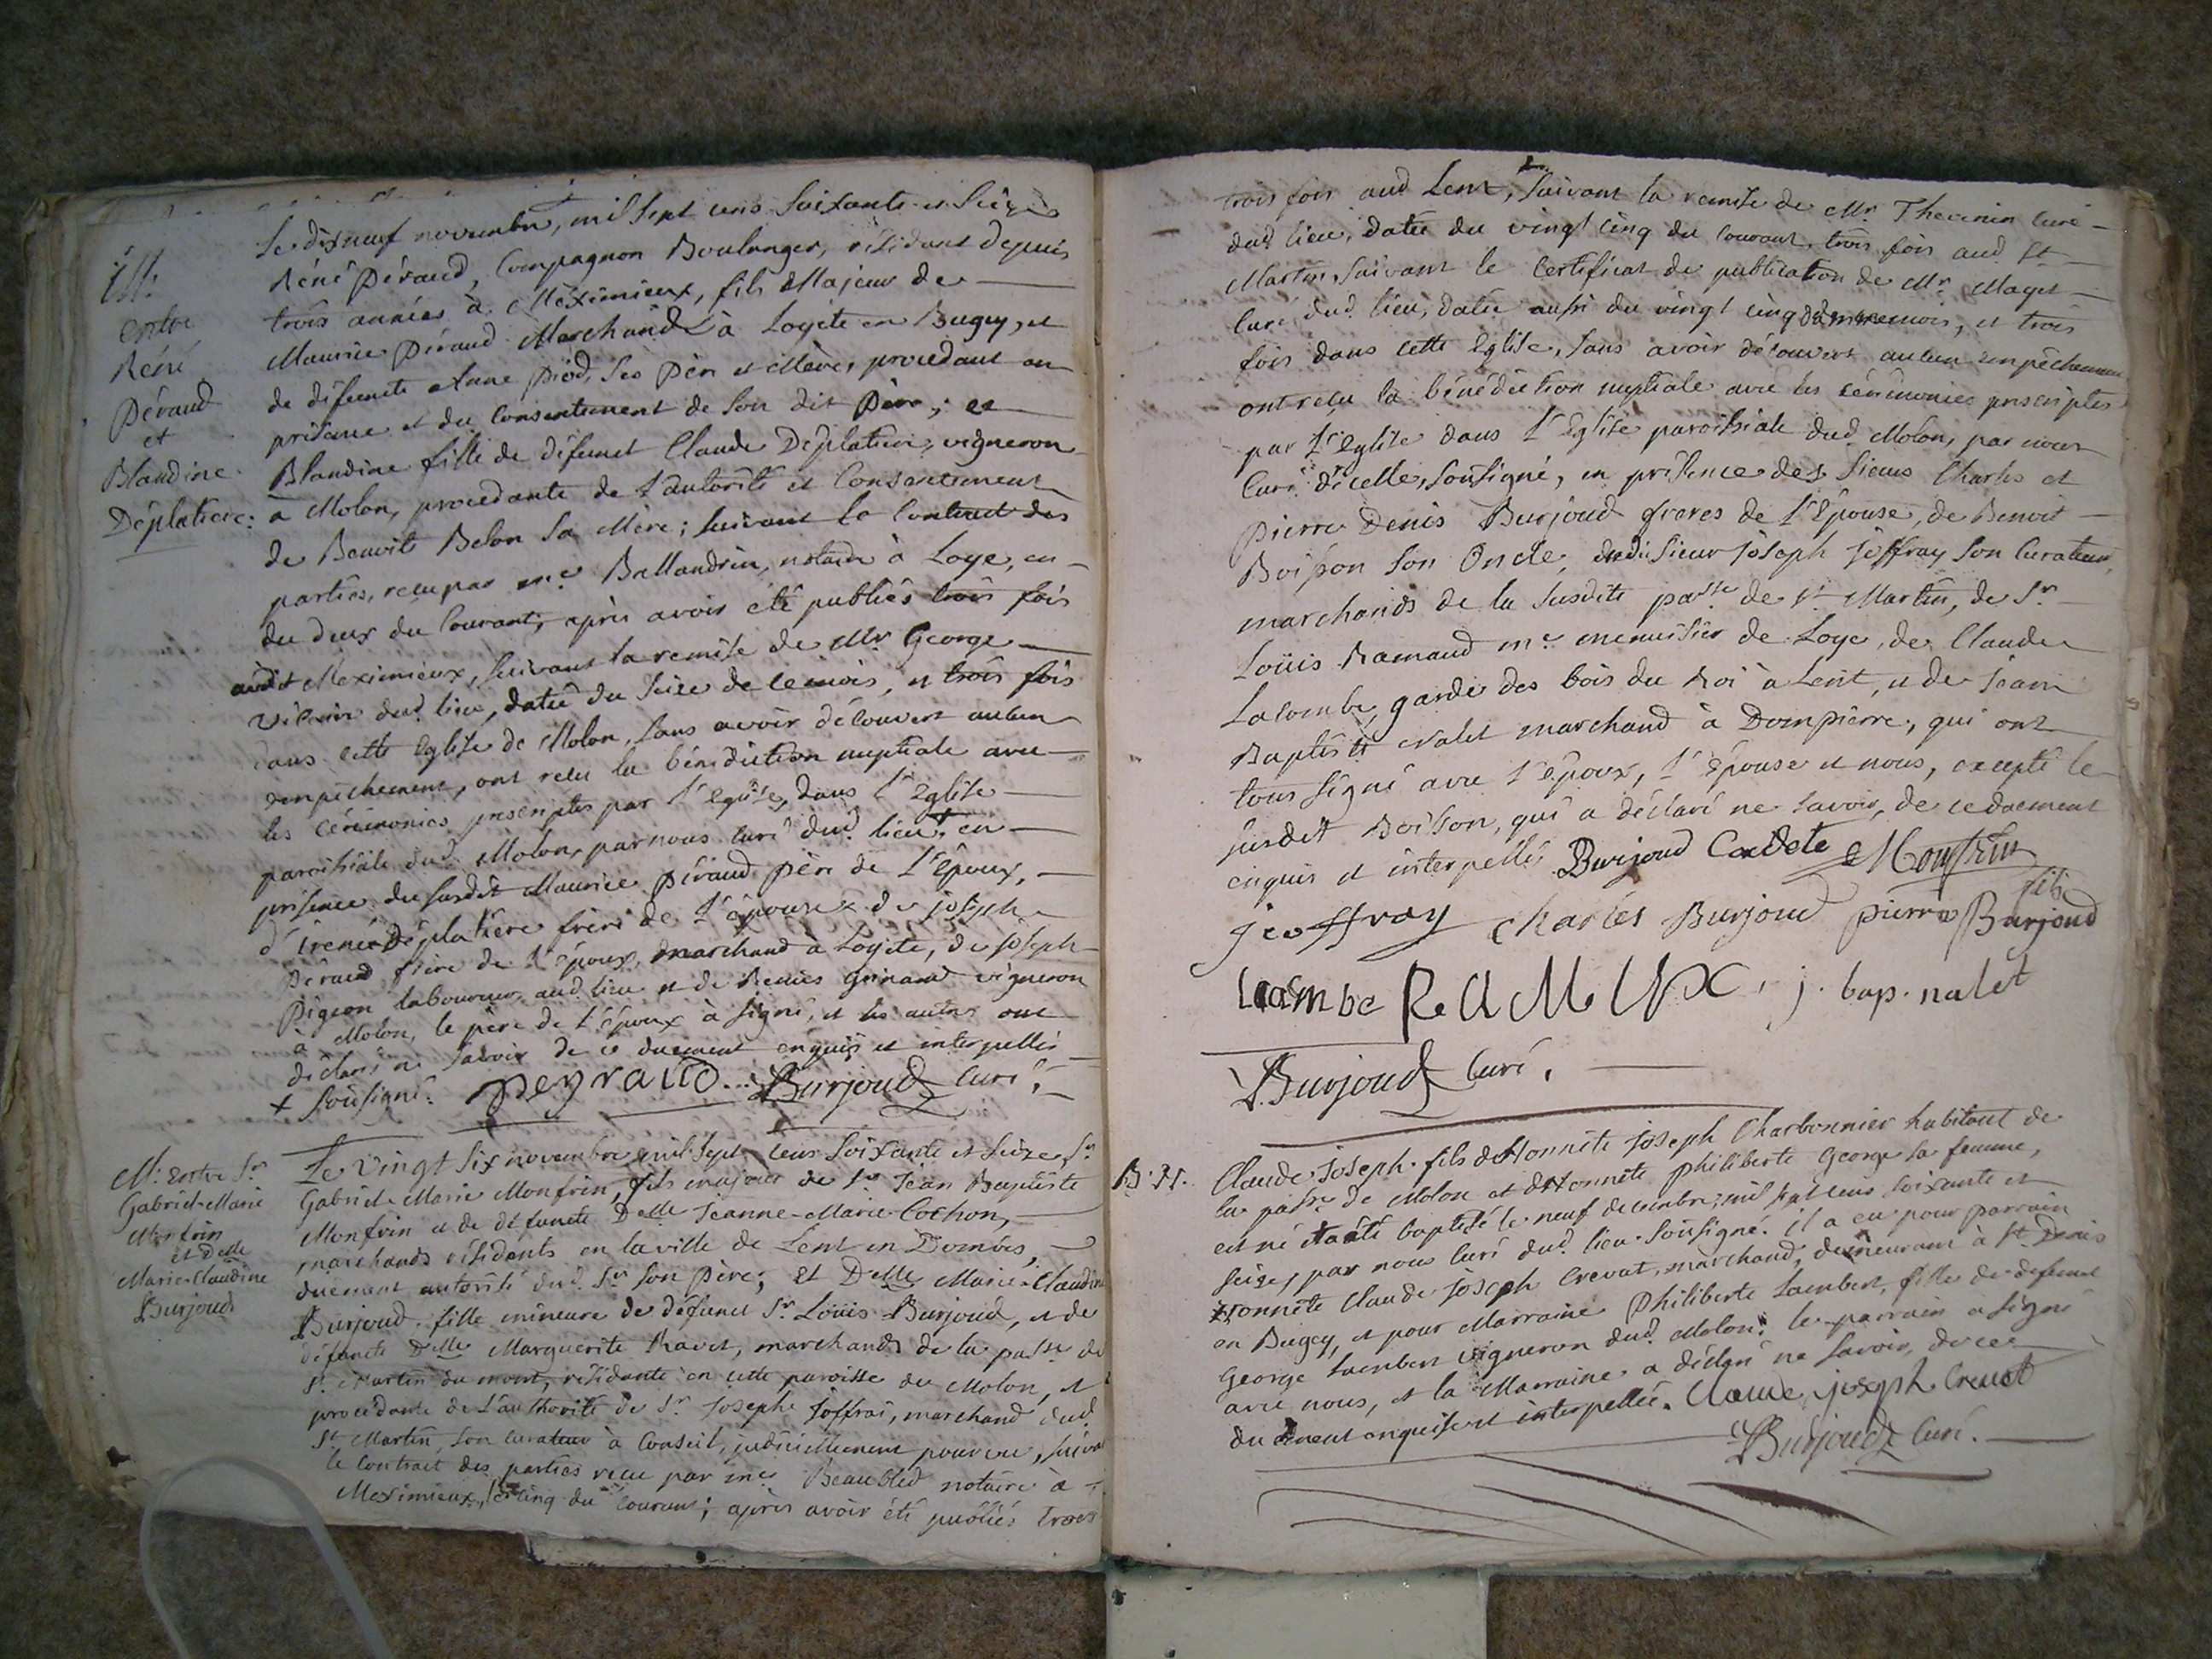 Le dixneuf novembre, mil sept cens soixante et seize
M.
entre
Réné
Péraud
et
Blandine
Déplatiere:
Réné Péraud, Compagnon Boulanger, résidant depuis
trois années à Méximieux, fils Majeur de
Maurice péraud Marchand à Loyete en Bugey, et
de défunte Anne piod, ses Père et Mère, procedant en
présence et du consentement de son dit père; et
Blandine fille de défunct Claude Déplatiere, vigneron
à Molon, procedante de l'autorité et Consentement
de Benoite Belon sa Mère; suivant le Contract des
parties, reçu par me Ballandrin, notaire à Loye, en
du deux du Courant, après avoir été publiés trois fois
audit Meximieux, suivant la remise de Mr George
vicaire dud. lieu, datée du seize de ce mois, et trois fois
dans cette Eglise de Molon, sans avoir découvert aucun
empêchement, ont reçu la bénédiction nuptiale avec
les cérémonies prescriptes par l'Eglise, dans l'Eglise
paroissiale dud. Molon, par nous curé dud. lieu + en
présence du susdit Maurice péraud père de l'Epoux,
d'irenée Déplatière frère de l'épouse de joseph
Péraud frère de l'époux, marchand à Loyete, de joseph
Pigeon laboureur aud. lieu et de Grinand vigneron
à Molon, le père de l'époux à signé, et les autres ont
déclaré ne savoir de ce duement enquis et interpellés
+ sousigné. peyraud... Burjoud Curé.
M. Entre Sr
Gabriel-Marie
Monfrin
et Delle
Marie-Claudine
Burjoud
Le vingt six novembre mil sept cens soixante et seize Sr
Gabriel Marie Monfrin, fils majeur de Sr Jean Baptiste
Monfrin et de défuncte Delle Jeanne-Marie Cochon,
marchands résidants en la ville de Lent en Dombes,
duement autorisé dud. Sr son père; et Delle Marie-Claudine
Burjoud fille mineure de défunct Sr Loüis Burjoud, et de
défuncte Delle Marguerite Ravet, marchands de la passe de
St Martin du mont, résidante en cette paroisse de Molon, et
procédante de l'authorité de Sr Joseph Joffrai, marchand dud.
St Martin, son curateur à Conseil, judiciellement pourvu, suiva
le Contract des parties reçu par me Beaubled notaire à
Meximieux, le cinq du courant; après avoir été publiés trois
trois fois aud Lent, suivant la remise de Mr Thevenin Curé
dud. lieu, datée du vingt cinq du courant, trois fois aud St
Martin, suivant le Certificat de publication de Mr Maget
Curé dud. lieu, datée aussi du vingt cinq mois, et trois
fois dans cette Eglise, sans avoir découvert aucun empêchement
ont reçu la bénédiction nuptiale avec les cérémonies prescriptes
par l'Eglise dans l'Eglise paroissiale dud. Molon, par nous
Curé d'icelle, sousigné, en présence des sieurs Charles et
pierre Denis Burjoud freres de l'Epouse, de Benoit
Boisson son Oncle, dudit sieur joseph Joffray son Curateur,
marchands de la susdite passe de St Martin, de Sr
Loüis Ramaud me menuisier de Loye, de Claude
Lacombe, garde des bois du Roi à Lent, et de jean
Baptiste nalet marchand à Dompierre, qui ont
tous signé avec l'époux, l'épouse et nous, excepté le
susdit Boisson, qui a déclaré ne savoir, de ce duement
enquis et interpellé. Burjoud Cadete Monfrin
fils
jeoffray charles Burjoud pierre Burjoud
Lacombe j. bap. nalet
Burjoud Curé.
Claude Joseph fils d'Honnête joseph Charbonnier habitant de
la passe de Molon et d'Honnête philiberte George sa femme,
est né et a été baptisé le neuf decembre, mil sept cens soixante et
seize, par nous Curé dud. lieu sousigné. il a eu pour parrain
Honnête Claude joseph Crevat, marchand, demeurant à St Denis
en Bugey, et pour Marraine Philiberte Lambert, fille de defunct
George Lambert vigneron dud. Molon; le parrain a signé
avec nous, et la Marraine a déclaré ne savoir, de ce
duement enquise et interpellée. Claude joseph Crevat
Burjoud Curé.